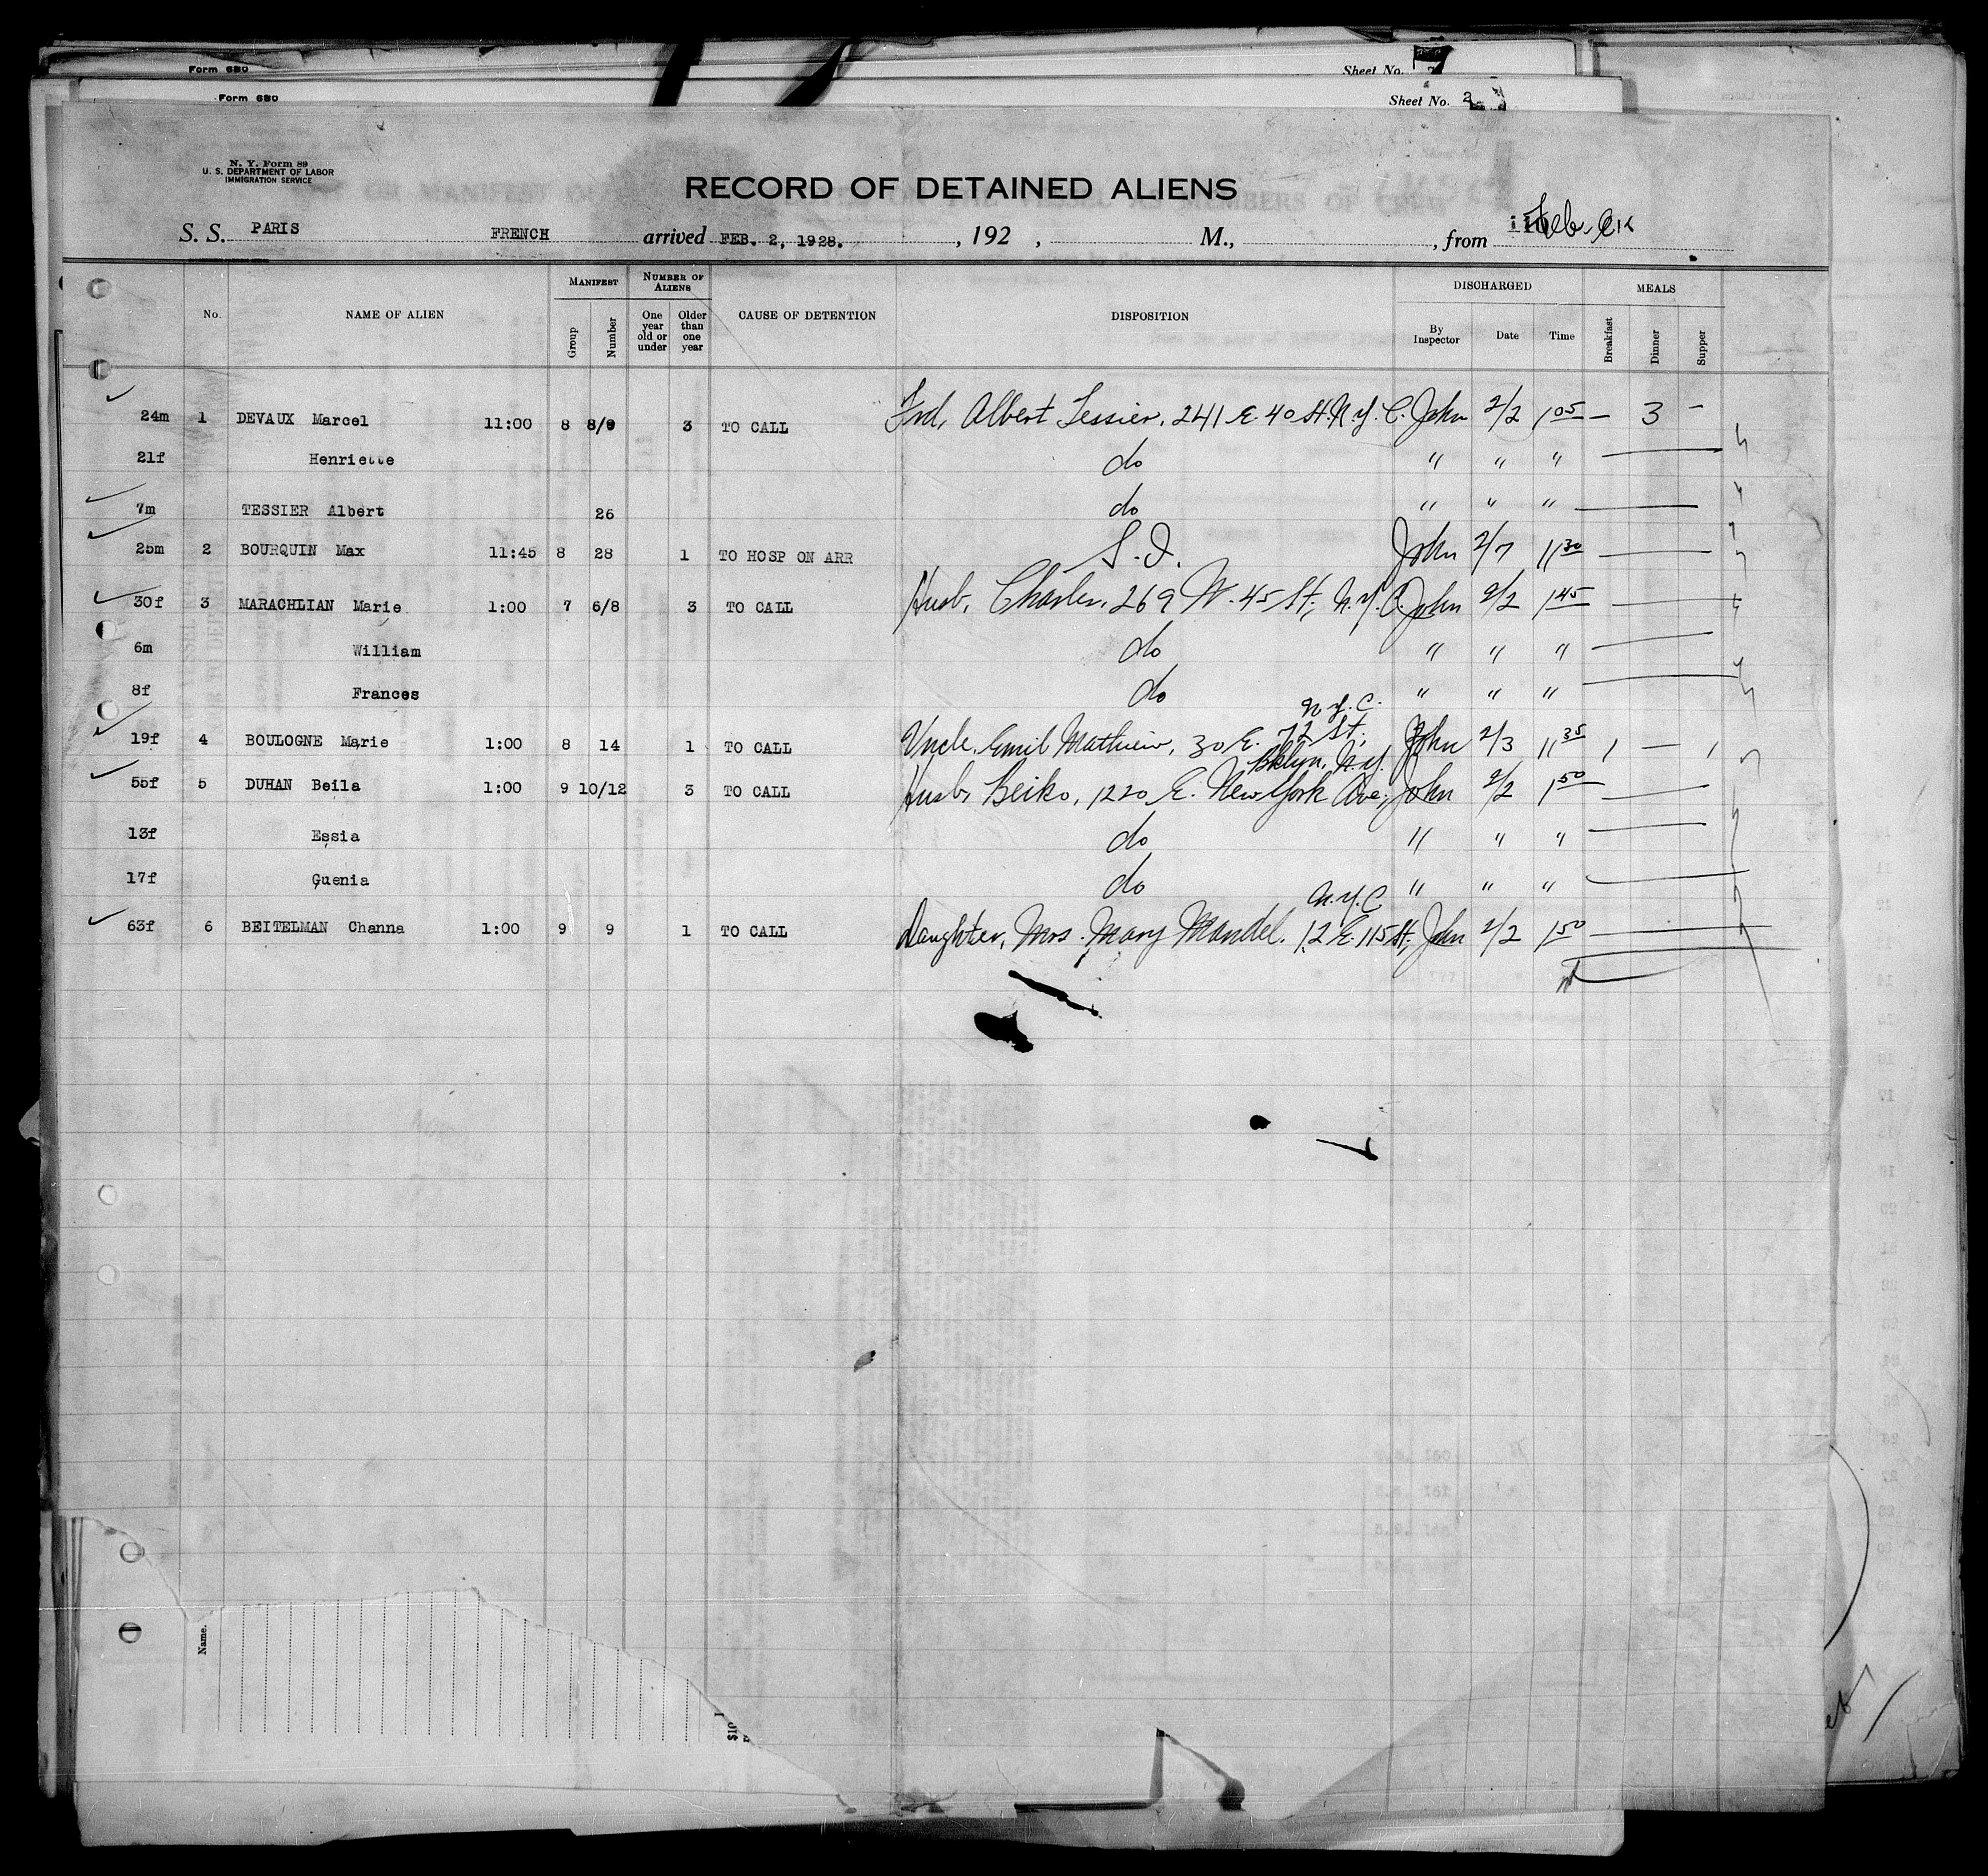 Form 680
Sheet No.
Form 680
Sheet No. 2
N. Y. Form 89
U. S. DEPARTMENT OF LABOR
IMMIGRATION SERVICE
RECORD OF DETAINED ALIENS
S. S. PARIS FRENCH arrived FEB. 2, 1928. , 192 , M., , from
No. NAME OF ALIEN MANIFEST Group Number NUMBER OF ALIENS One year old or under Older than one year CAUSE OF DETENTION DISPOSITION DISCHARGED By Inspector Date Time MEALS Breakfast Dinner Supper
24m 1 DEVAUX Marcel 11:00 8 8/9 3 TO CALL Frd, Albert Tessier, 241 E. 40 St. N.Y.C. John 2/2 1 05 — 3 —
21f Henriette do " " "
7m TESSIER Albert 26 do " " "
25m 2 BOURQUIN Max 11:45 8 28 1 TO HOSP ON ARR S.I. John 2/7 11 30
30f 3 MARACHLIAN Marie 1:00 7 6/8 3 TO CALL Husb, Charles, 269 W. 45 St, N.Y.C. John 2/2 1 45
6m William do " " "
8f Frances do " " "
19f 4 BOULOGNE Marie 1:00 8 14 1 TO CALL Uncle, Emil Mathieu, 30 E. 72 St, N.Y.C. John 2/3 11 35 1 — 1
55f 5 DUHAN Beila 1:00 9 10/12 3 TO CALL Husb, Beiko, 1220 E. New York Ave, Bklyn, N.Y. John 2/2 1 50
13f Essia do " " "
17f Guenia do " " "
63f 6 BEITELMAN Channa 1:00 9 9 1 TO CALL Daughter, Mrs. Mary Mandel. 12 E. 115 St, N.Y.C. John 2/2 1 50
Name.